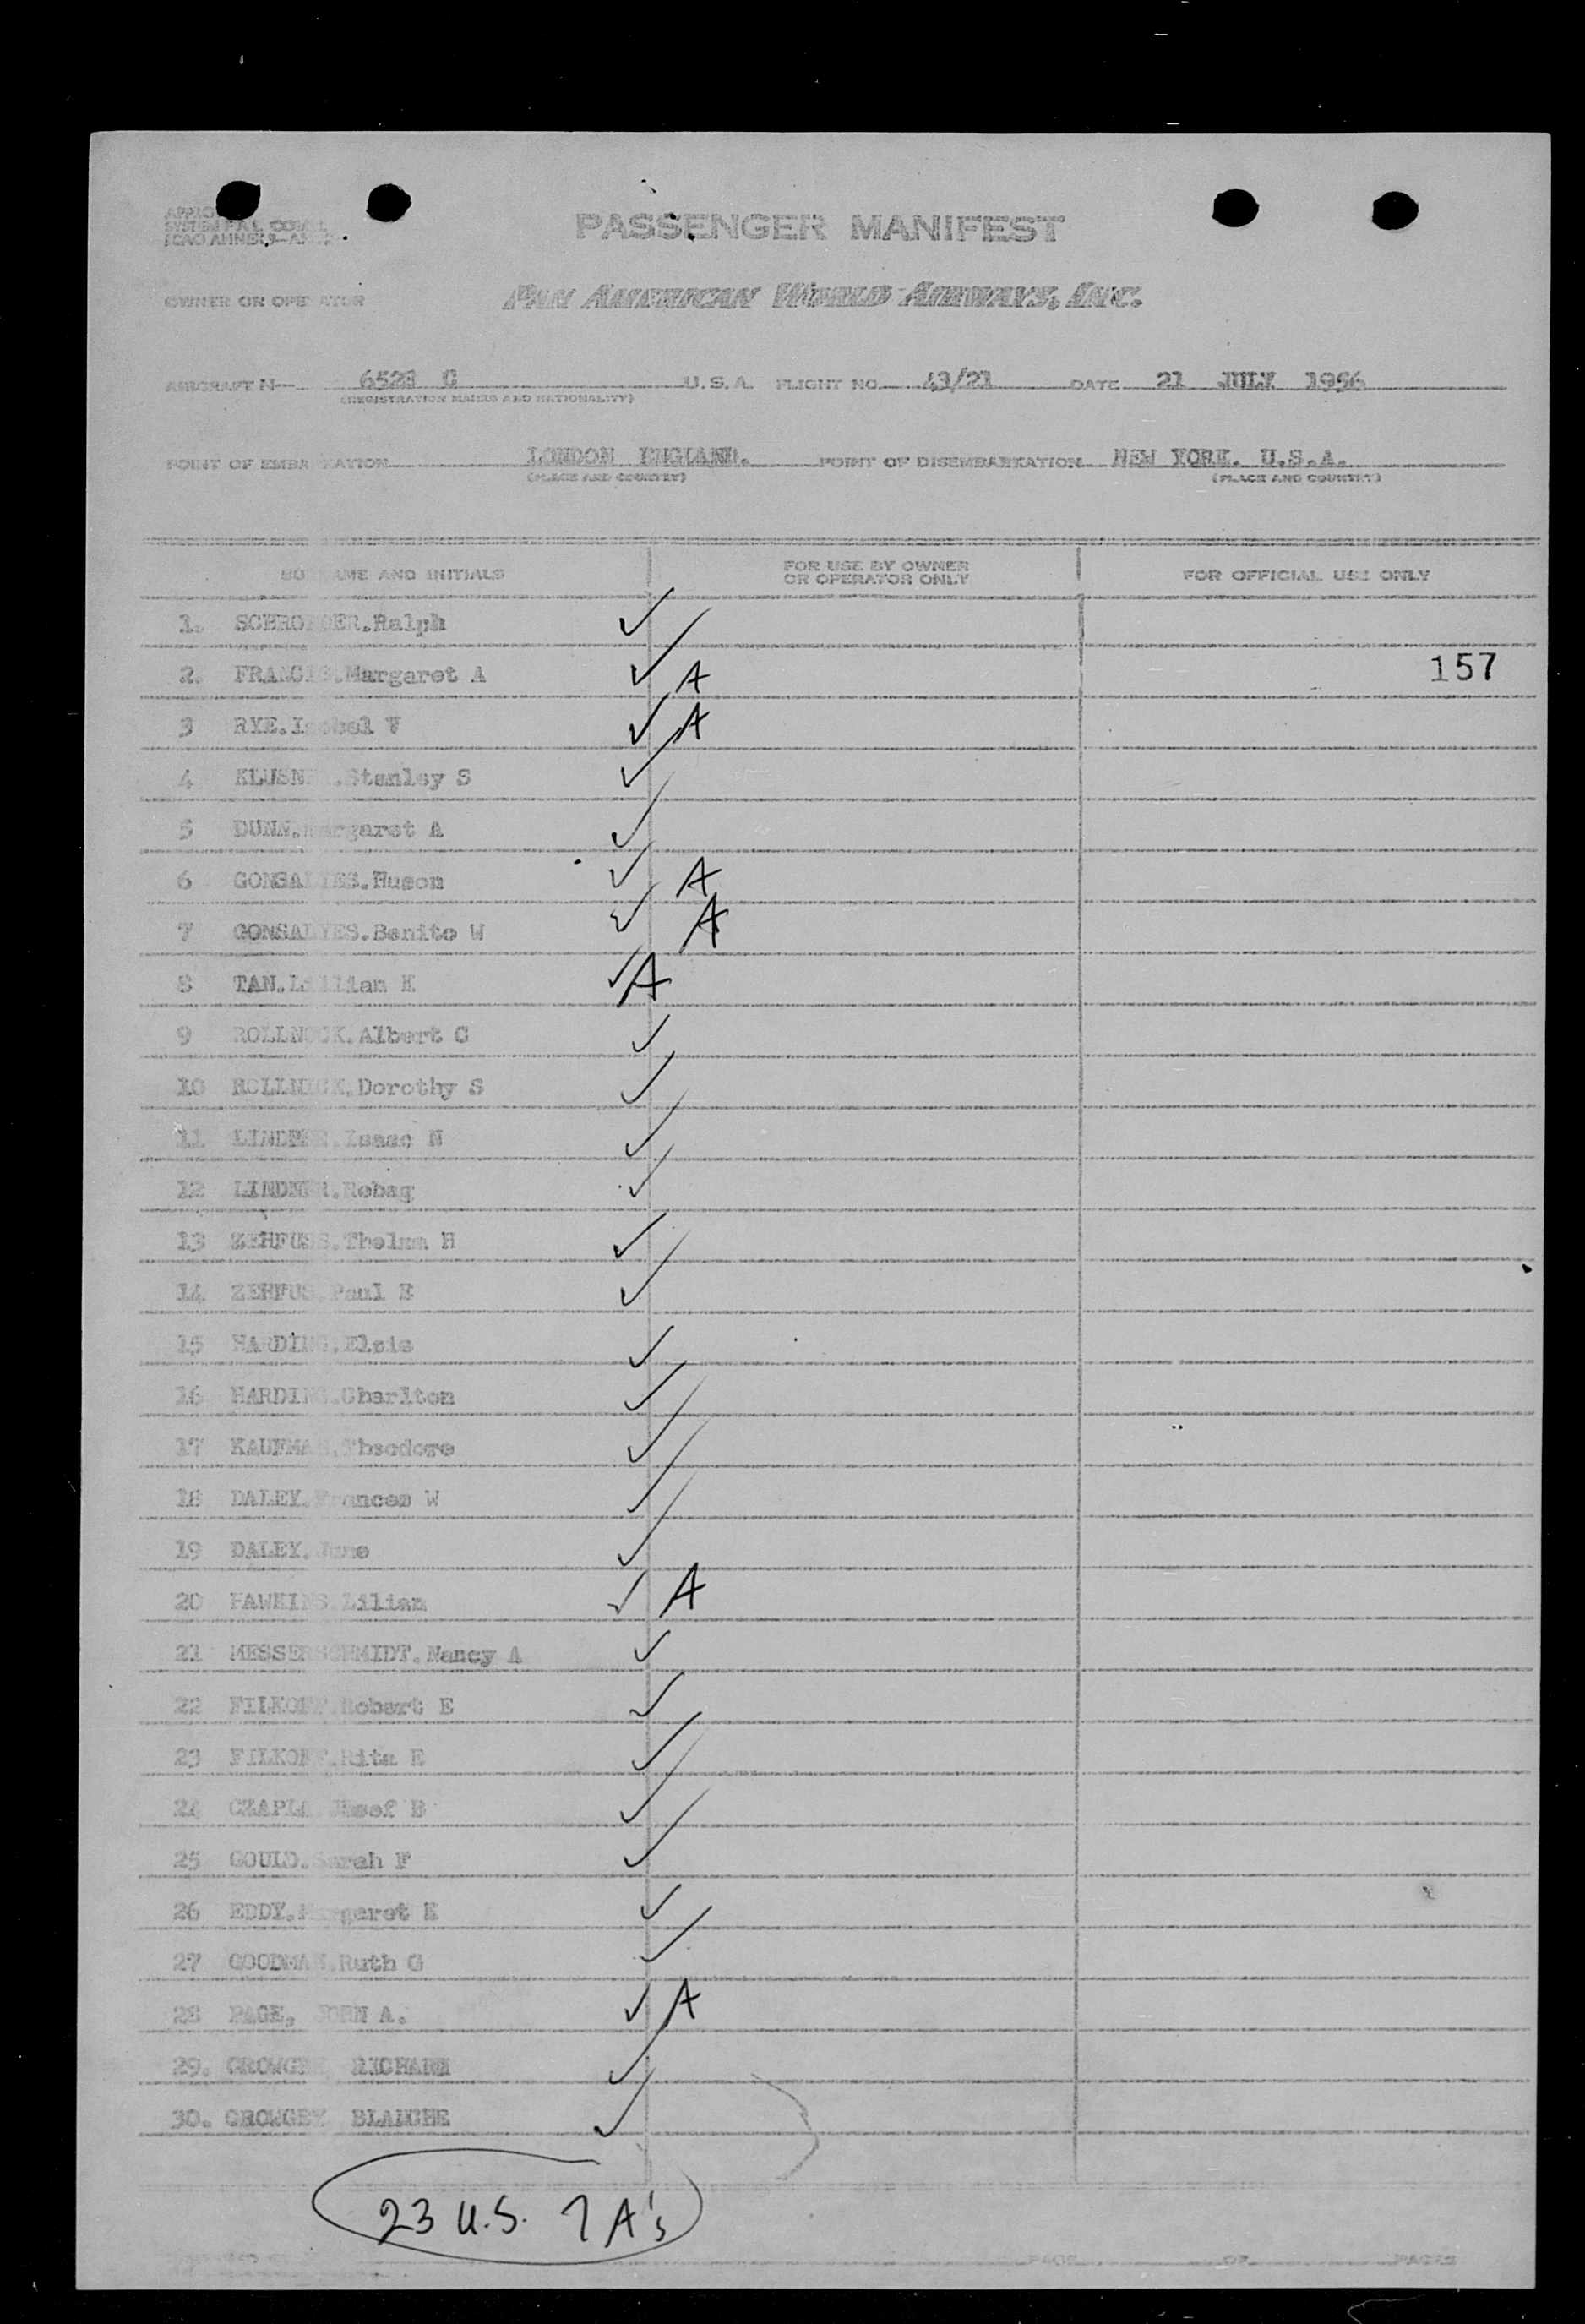 PASSENGER MANIFEST
OWNER OR OPERATOR
PAN AMERICAN WORLD AIRWAYS, INC.
AIRCRAFT N— 6528 C U.S.A. FLIGHT NO. 43/21 DATE 21 JULY 1956
(REGISTRATION MARKS AND NATIONALITY)
POINT OF EMBARKATION LONDON ENGLAND. POINT OF DISEMBARKATION NEW YORK. U.S.A.
(PLACE AND COUNTRY) (PLACE AND COUNTRY)
SURNAME AND INITIALS FOR USE BY OWNER OR OPERATOR ONLY FOR OFFICIAL USE ONLY
1. SCHROEDER.Ralph ✓
2. FRANCIS.Margaret A ✓ A 157
3 RYE.Isobel ✓ A
4 Stanley S ✓
5 DUNN.Margaret A ✓
6 GONSALVES. ✓ A
7 GONSALVES.Benito W ✓ A
8 TAN.Lillian K ✓ A
9 Albert C ✓
10 ROLLNICK.Dorothy S ✓
11 LINDNER.Isaac N ✓
12 LINDNER. ✓
13 ZEHFUSS.Thelma H ✓
14 ZEHFUS.Paul E ✓
15 HARDING.Elsie ✓
16 HARDING.Charlton ✓
17 KAUFMAN.Theodore ✓
18 DALEY.Frances W ✓
19 DALEY.June ✓
20 Lilian ✓ A
21 MESSERSCHMIDT.Nancy A ✓
22 FILKOFF.Robert E ✓
23 FILKOFF.Rita E ✓
24 CZAPLA Josef B ✓
25 GOULD.Sarah F ✓
26 EDDY.Margaret E ✓
27 GOODMAN.Ruth G ✓
28 PAGE, JOHN A. ✓ A
29. RICHARD ✓
30. BLANCHE ✓
23 U.S. 7 A's
PAGE OF PAGES